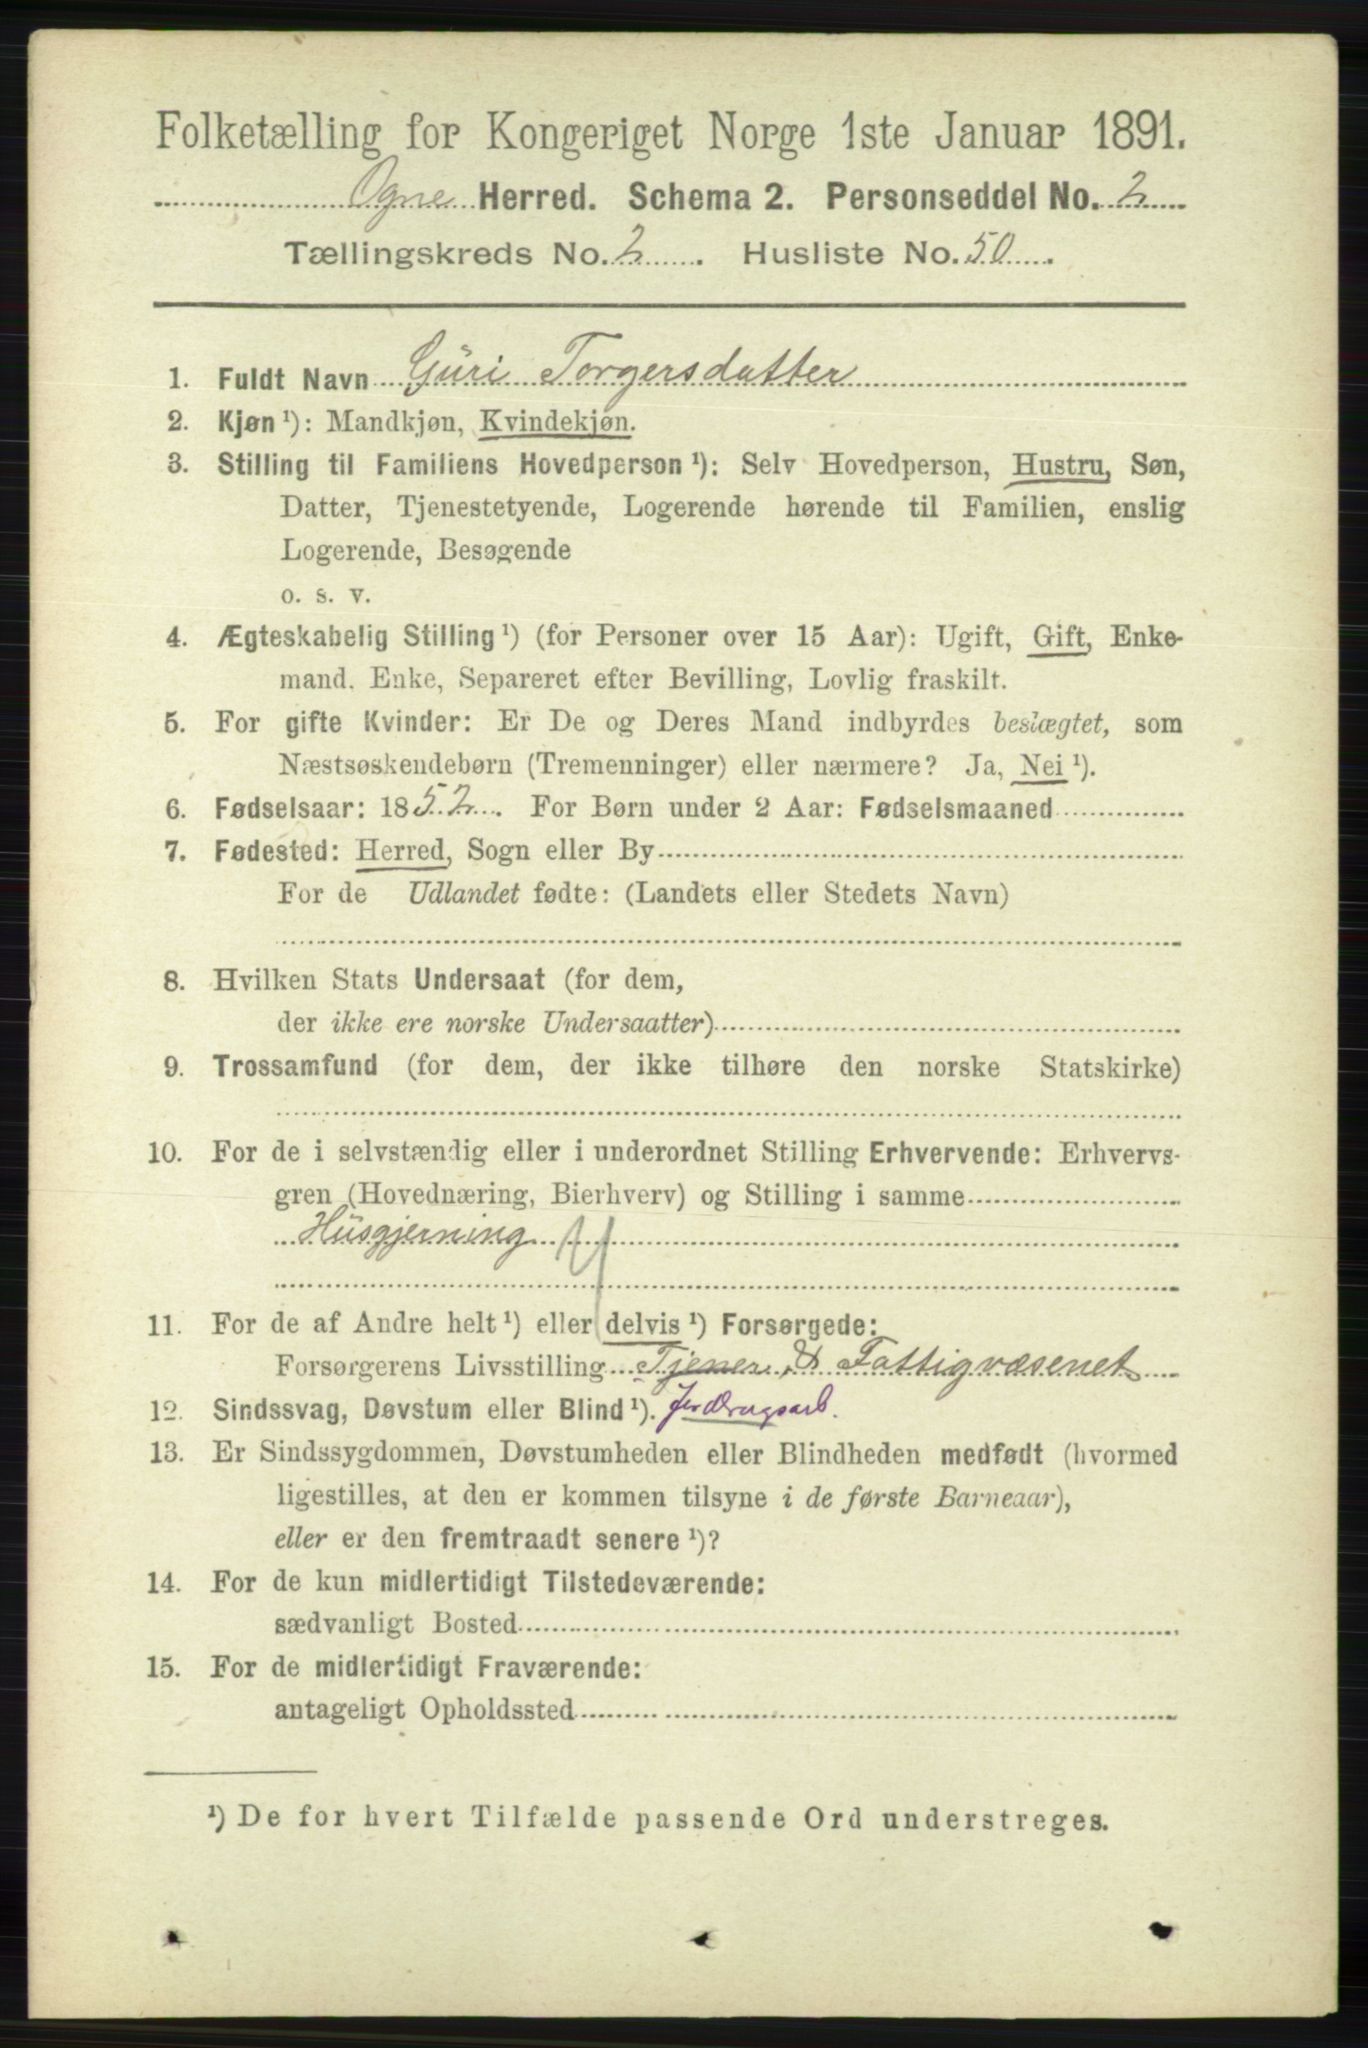 Folketælling for Kongeriget Norge 1ste Januar 1891.
Ogne Herred. Schema 2. Personseddel No. 2
Tællingskreds No. 2. Husliste No. 50.
1. Fuldt Navn Guri Torgersdatter
2. Kjøn ¹): Mandkjøn, Kvindekjøn.
3. Stilling til Familiens Hovedperson ¹): Selv Hovedperson, Hustru, Søn,
Datter, Tjenestetyende, Logerende hørende til Familien, enslig
Logerende, Besøgende
o. s. v.
4. Ægteskabelig Stilling ¹) (for Personer over 15 Aar): Ugift, Gift, Enke-
mand. Enke, Separeret efter Bevilling, Lovlig fraskilt.
5. For gifte Kvinder: Er De og Deres Mand indbyrdes beslægtet, som
Næstsøskendebørn (Tremenninger) eller nærmere? Ja, Nei ¹).
6. Fødselsaar: 1852. For Børn under 2 Aar: Fødselsmaaned
7. Fødested: Herred, Sogn eller By
For de Udlandet fødte: (Landets eller Stedets Navn)
8. Hvilken Stats Undersaat (for dem,
der ikke ere norske Undersaatter)
9. Trossamfund (for dem, der ikke tilhøre den norske Statskirke)
10. For de i selvstændig eller i underordnet Stilling Erhvervende: Erhvervs-
gren (Hovednæring, Bierhverv) og Stilling i samme
Husgjerning
11. For de af Andre helt ¹) eller delvis ¹) Forsørgede:
Forsørgerens Livsstilling Tjener, & Fattigvæsenet
12. Sindssvag, Døvstum eller Blind ¹). Jordbrugsarb.
13. Er Sindssygdommen, Døvstumheden eller Blindheden medfødt (hvormed
ligestilles, at den er kommen tilsyne i de første Barneaar),
eller er den fremtraadt senere ¹)?
14. For de kun midlertidigt Tilstedeværende:
sædvanligt Bosted
15. For de midlertidigt Fraværende:
antageligt Opholdssted
¹) De for hvert Tilfælde passende Ord understreges.